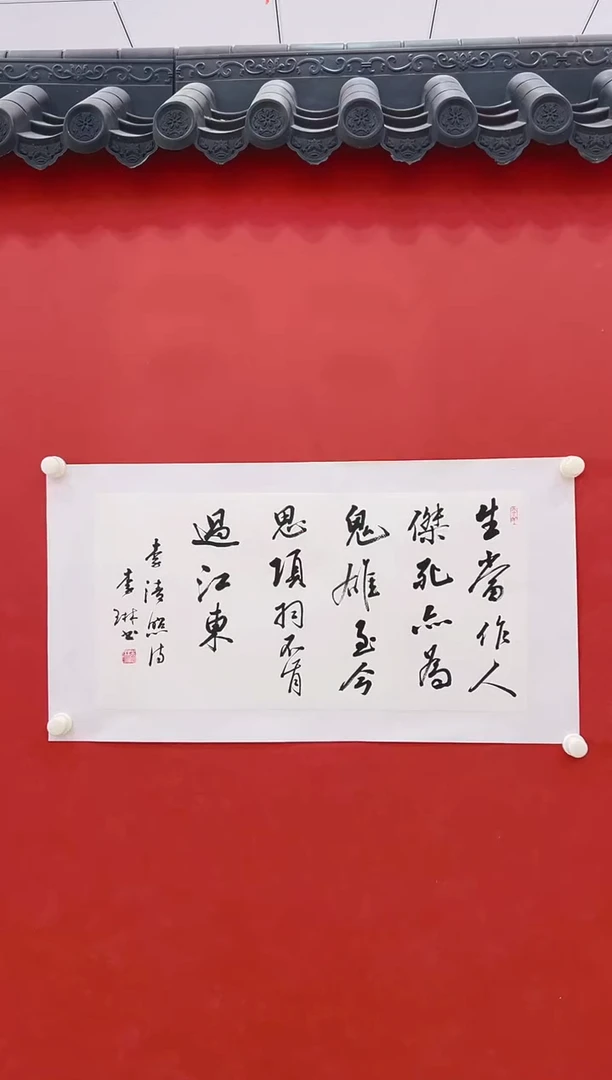 生當作人
傑死亦為
鬼雄至今
思項羽不肯
過江東
李清照詩
李琳书